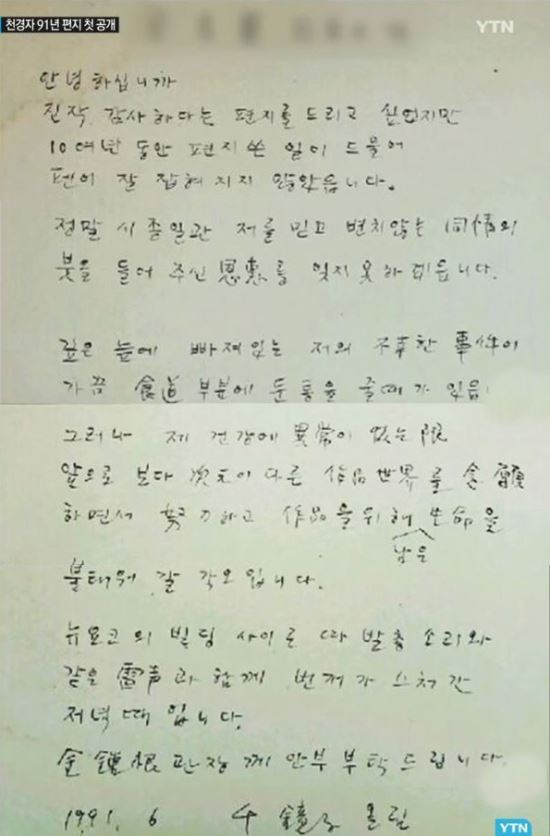 천경자 91년 편지 첫 공개
YTN
안녕하십니까
진작 감사하다는 편지를 드리고 싶었지만
10여년 동안 편지 쓴 일이 드물어
펜이 잘 잡혀지지 않았읍니다.
정말 시종일관 저를 믿고 변치않는 同情의
붓을 들어 주신 恩惠를 잊지 못하겠읍니다.
깊은 늪에 빠져있는 저의 不幸한 事件이
가끔 食道 부분에 둔통을 줄때가 있음
그러나 제 건강에 異常이 없는 限
앞으로 보다 次元이 다른 作品世界를
하면서 努力하고 作品을 위해 生命을
남은
불태워 갈 각오입니다.
뉴욕의 빌딩 사이로 따발총 소리와
같은 雷声과 함께 번개가 스쳐간
저녁때입니다.
金 根 관장께 안부 부탁드립니다.
1991. 6 千鏡子 올림
YTN